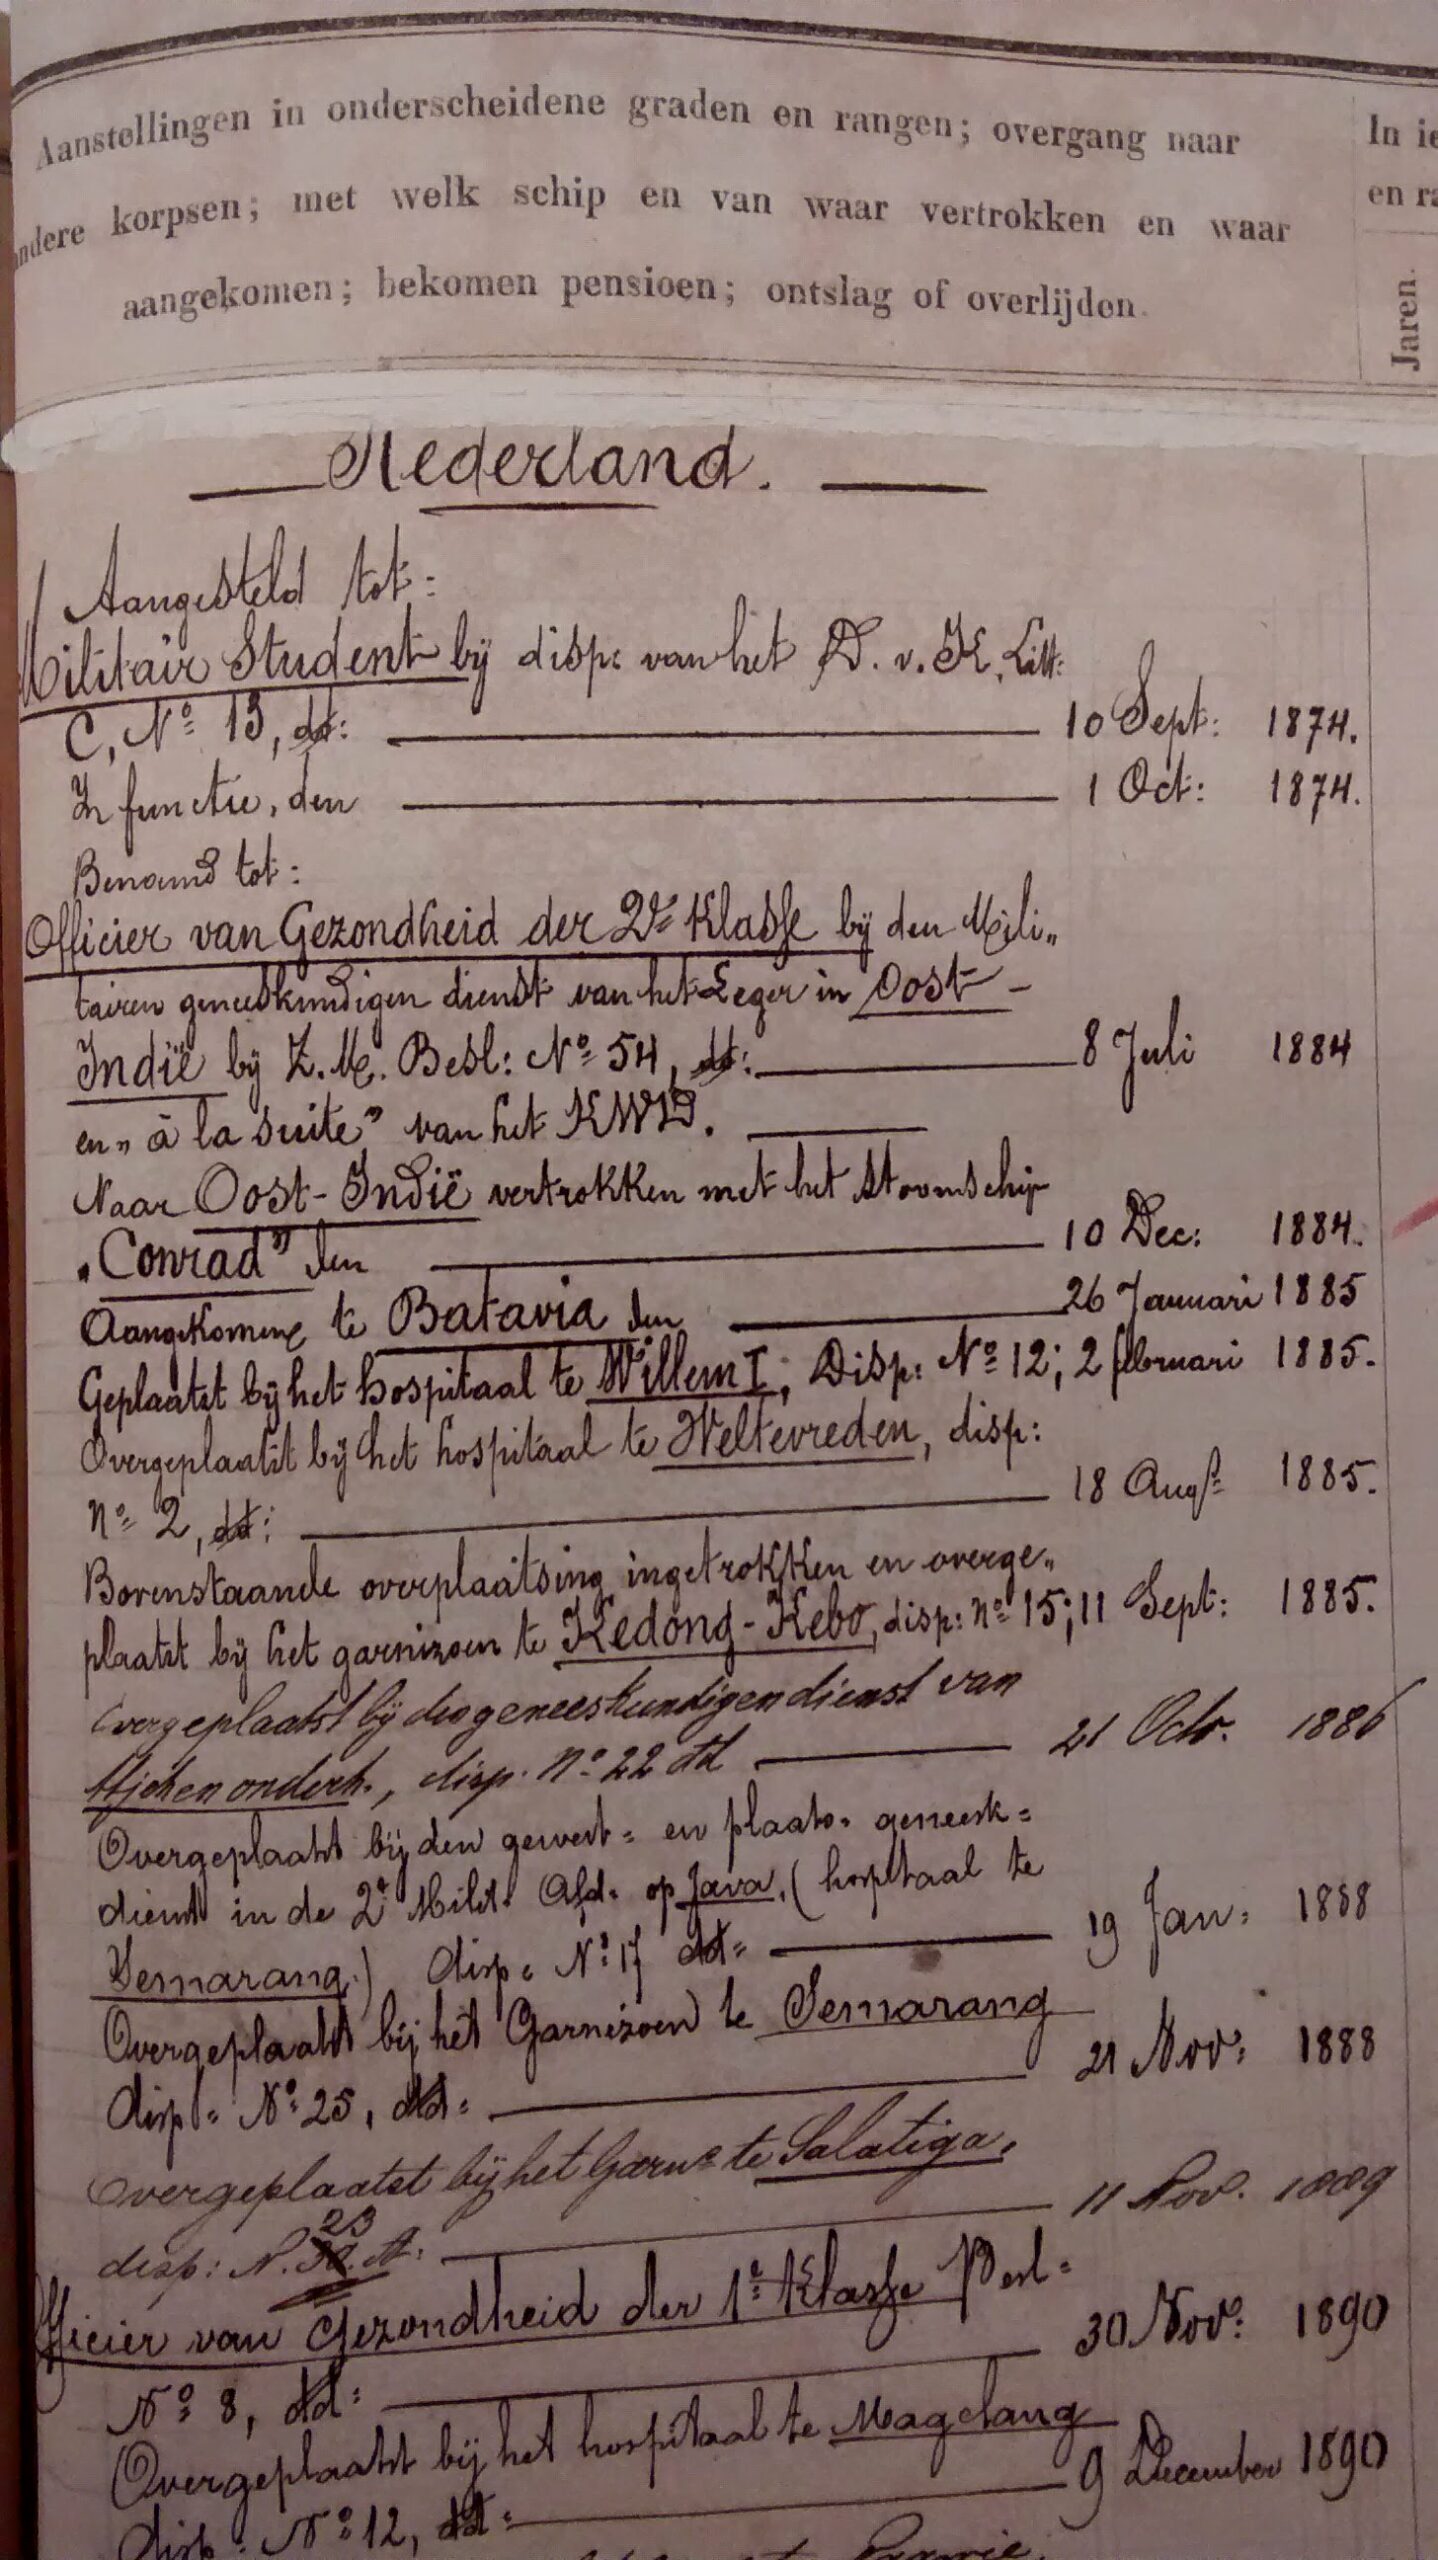 Aanstellingen in onderscheidene graden en rangen; overgang naar
andere korpsen; met welk schip en van waar vertrokken en waar
aangekomen; bekomen pensioen; ontslag of overlijden.
In ie
en ra
Jaren.
Nederland.
Aangesteld tot:
Militair Student bij disp: van het D. v. K. Litt:
C, No 13, dd: 10 Sept: 1874.
In functie, den 1 Oct: 1874.
Benoemd tot:
Officier van Gezondheid der 2de Klasse bij den Mili„
tairen geneeskundigen dienst van het Leger in Oost-
Indië bij Z. M. Besl: No 54, dd: 8 Juli 1884
en „à la suite” van het KWD.
Naar Oost-Indië vertrokken met het stoomschip
„Conrad” den 10 Dec: 1884.
Aangekomen te Batavia den 26 Januari 1885
Geplaatst bij het hospitaal te Willem I, Disp: No 12; 2 februari 1885.
Overgeplaatst bij het hospitaal te Weltevreden, disp:
No 2, dd: 18 Augs 1885.
Bovenstaande overplaatsing ingetrokken en overge„
plaatst bij het garnizoen te Kedong-Kebo, disp: no 15; 11 Sept: 1885.
Overgeplaatst bij den geneeskundigen dienst van
Atjeh en onderh., disp. No 22 dd 21 Octr. 1886
Overgeplaatst bij den gewest= en plaats. geneesk=
dienst in de 2e Milit. Afd. op Java. (hospitaal te
Semarang.) disp. No 17 dd= 19 Jan: 1888
Overgeplaatst bij het Garnizoen te Semarang
disp. No 25, dd= 21 Nov: 1888
Overgeplaatst bij het Garnn te Salatiga.
disp: N. 23 11 Nov. 1889
Officier van Gezondheid der 1e Klasse Besl=
No 8, dd: 30 Nov: 1890
Overgeplaatst bij het hospitaal te Magelang
disp. No 12, dd= 9 December 1890